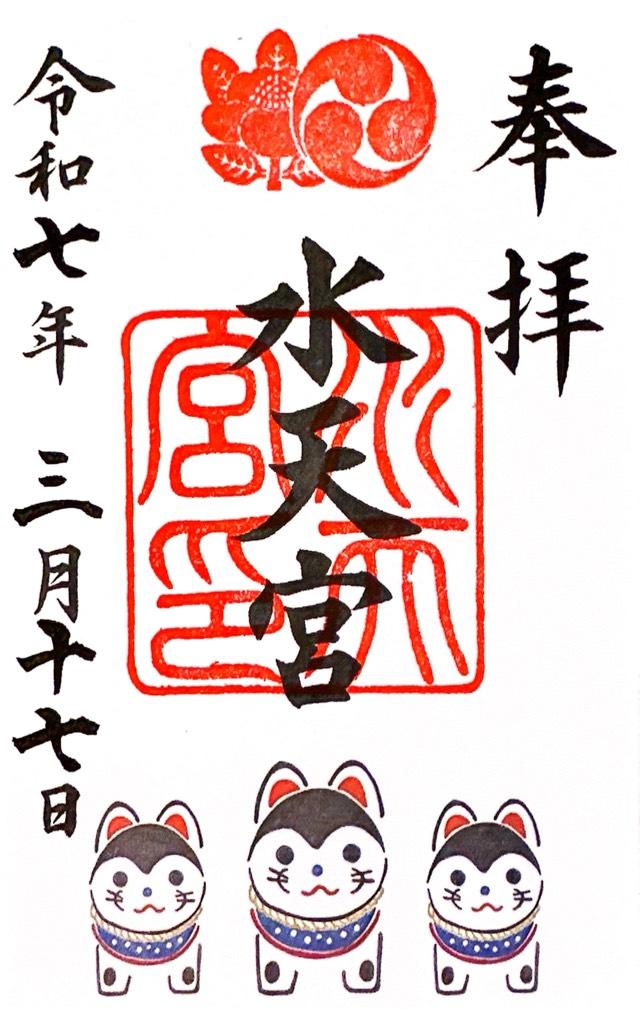 奉拝
水天宮
水天宮印
令和七年 三月十七日